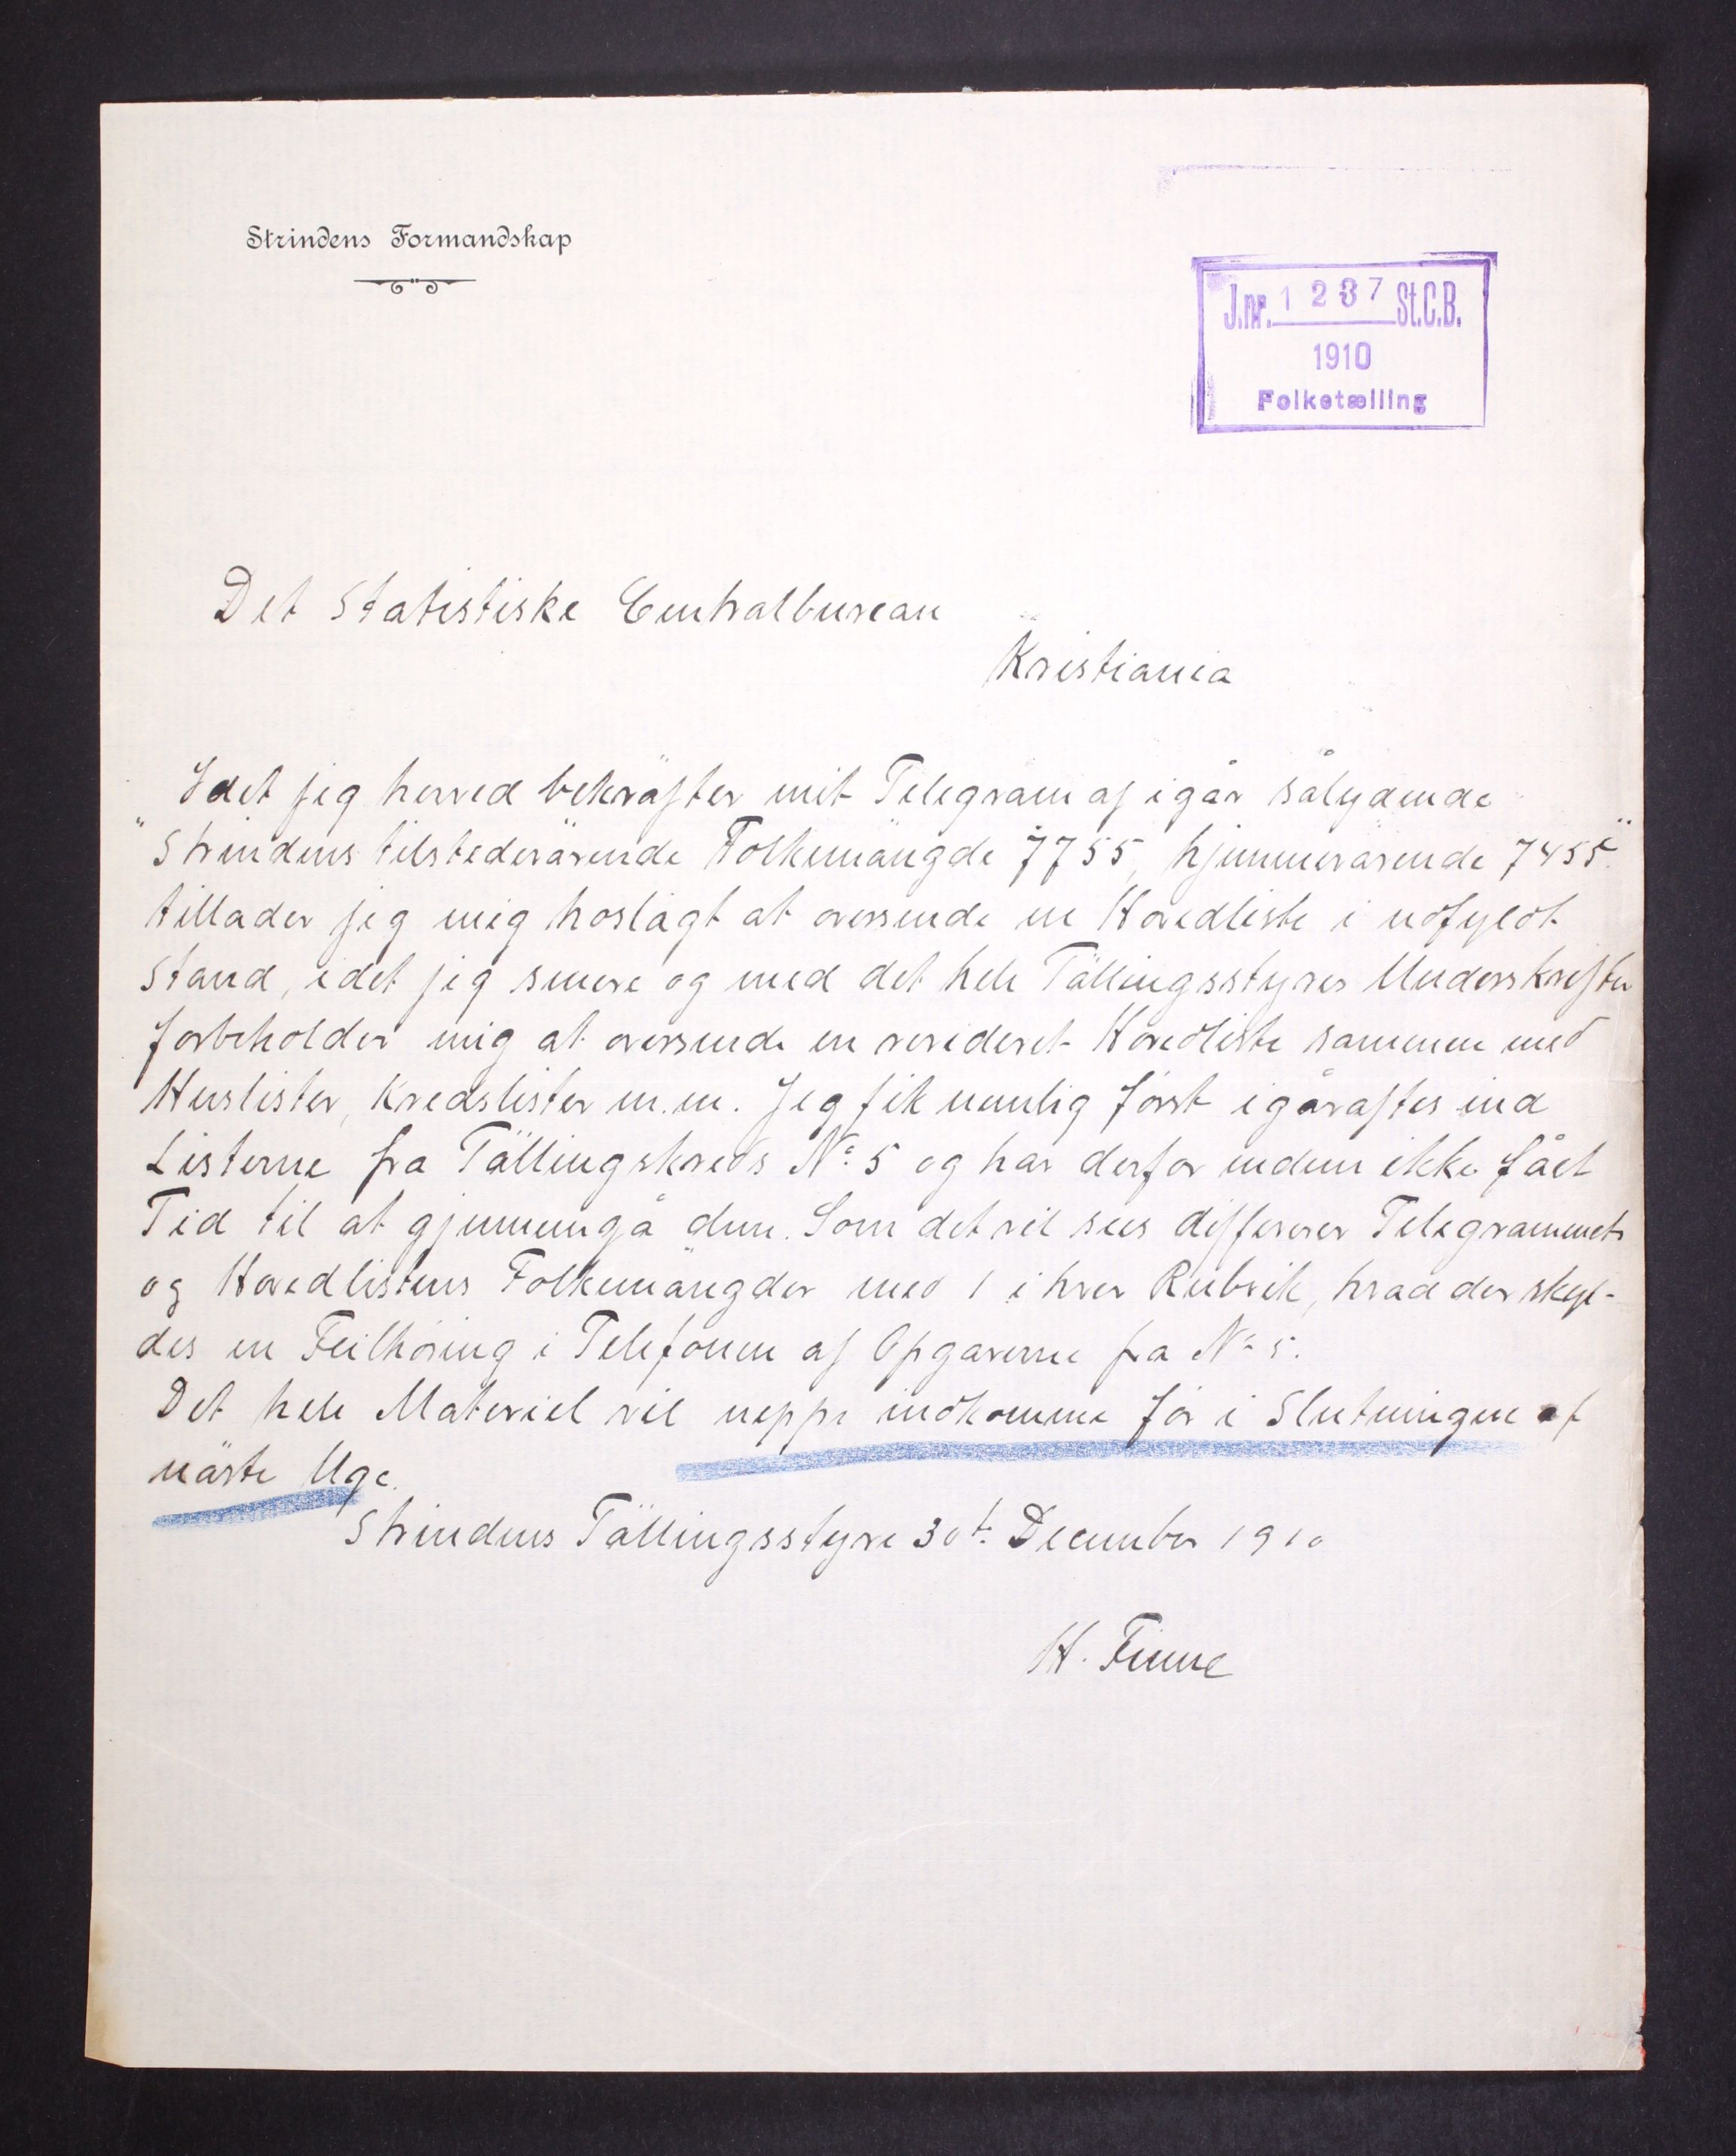 Strindens Formandskap
J.nr. 1237 St.C.B.
1910
Folketælling
Det Statistiske Centralbureau
Kristiania
Idet jeg herved bekräfter mit Telegram af igår sålydende
"Strindens tilstedevärende Folkemängde 7755, hjemmevärende 7455."
tillader jeg mig hoslagt at oversende en Hovedliste i udfyldt
Stand, idet jeg senere og med det hele Tällingsstyres Underskrifter
forbeholder mig at oversende en revideret Hovedliste sammen med
Huslister, Kredslister m.m. Jeg fik nemlig først igåraftes ind
Listerne fra Tällingskreds No 5 og har derfor endnu ikke fået
Tid til at gjennemgå dem. Som det vil sees differerer Telegrammets
og Hovedlistens Folkemängder med 1 i hver Rubrik, hvad der skyl-
des en Feilhöring i Telefonen af Opgaverne fra No 5.
Det hele Materiel vil neppe indkomme för i Slutningen af
näste Uge.
Strindens Tällingsstyre 30te December 1910
H. Finne